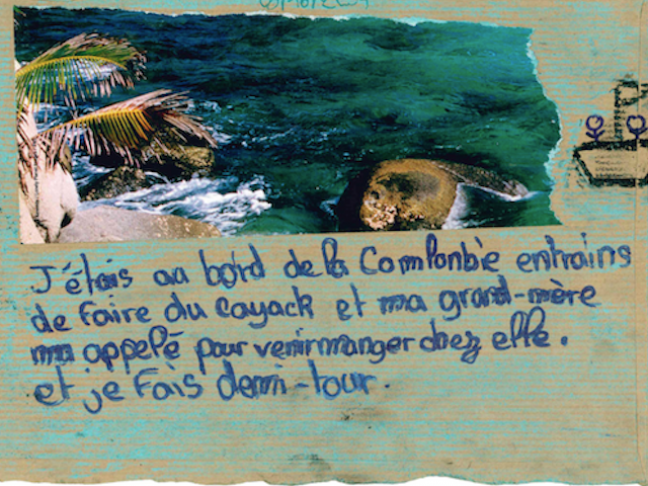 J'étais au bord de la Comlonbie entrains
de faire du cayack et ma grand-mère
ma appelé pour venir manger chez elle.
et je fais demi-tour.